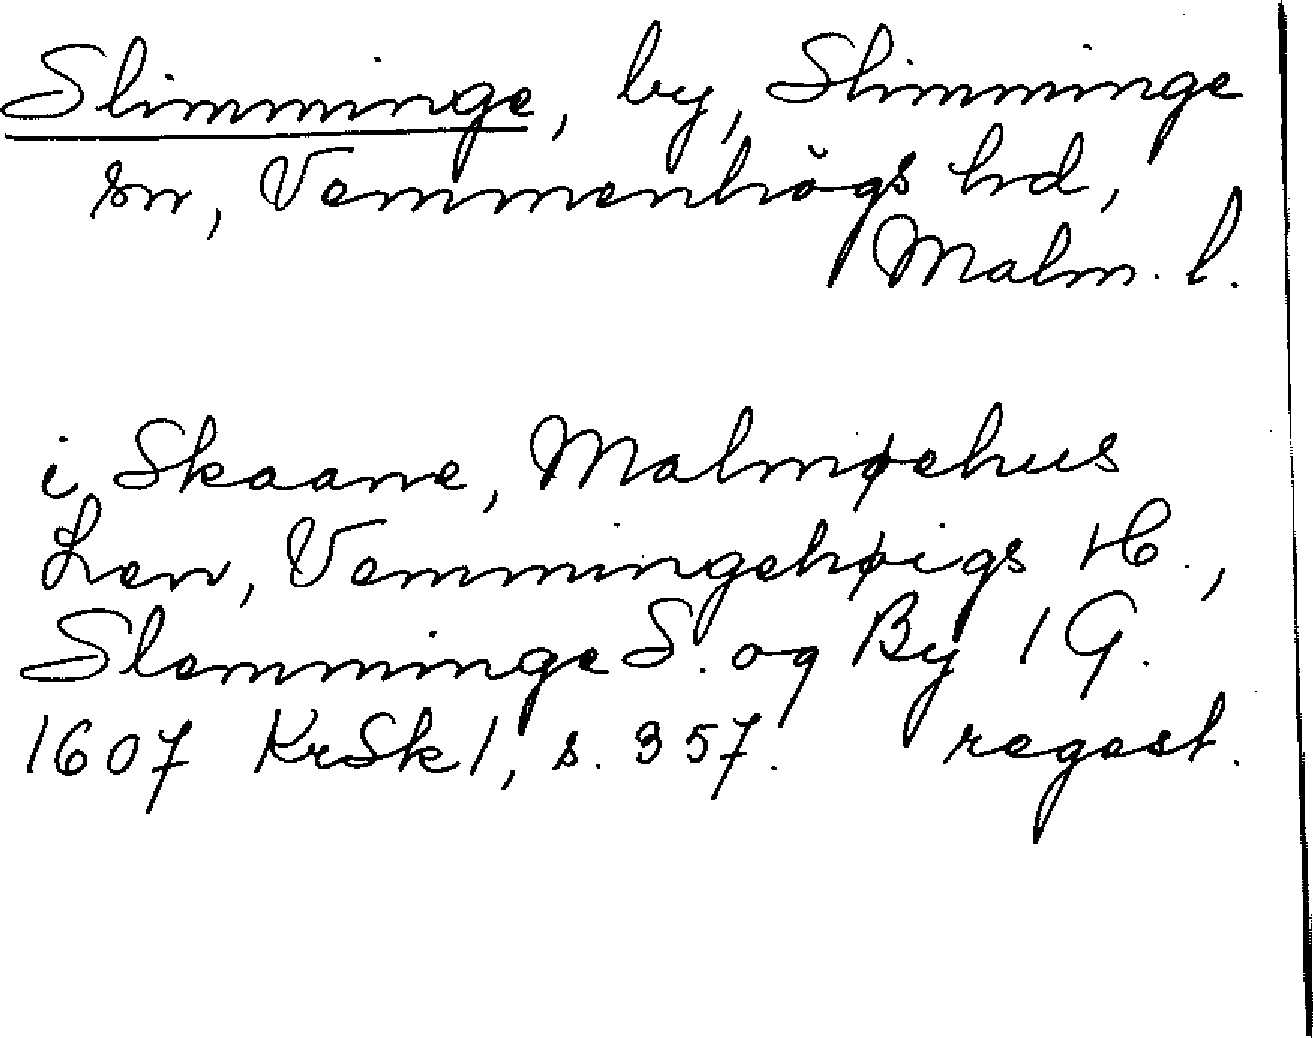 Slimminge, by, Slimminge
sn, Vemmenhögs hd,
Malm. l.
i Skaane, Malmøehus
Len, Vemmingehøigs H.,
Slemminge S. og By 1 G.
1607 KrSk 1, s. 357. regest.